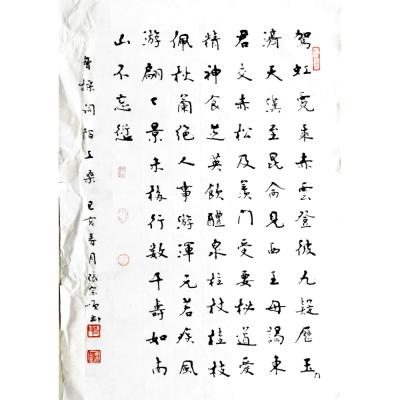 駕虹霓乘赤雲登彼九疑歷玉门
濟天漢至昆侖見西王母謁東
君交赤松及羨門受要秘道愛
精神食芝英飲醴泉柱杖桂枝
佩秋蘭絕人事游渾元若疾風
游翩々景未移行數千壽如南
山不忘愆
曹操詞陌上桑 己亥春月張宗順書